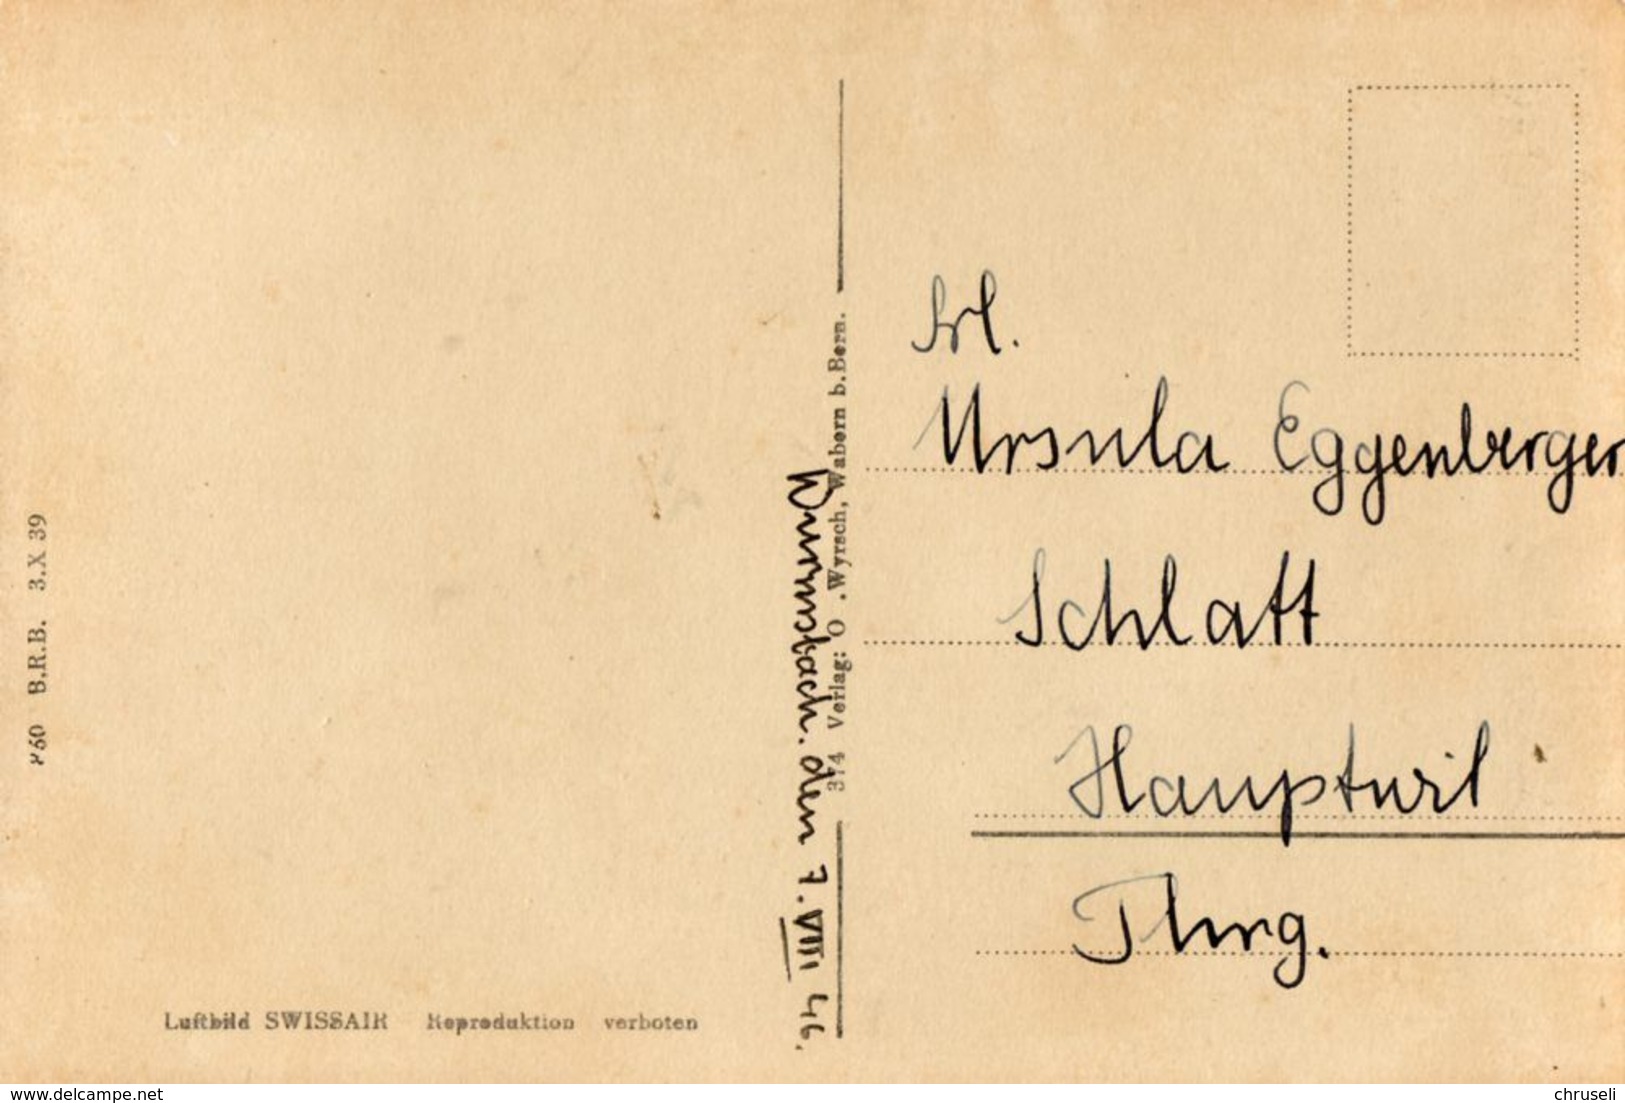 Frl.
Ursula Eggenberger
Schlatt
Hauptwil
Thrg.
Wurmsbach. den 7. VIII 46.
374 Verlag: O. Wyrsch, Wabern b. Bern.
B.R.B. 3.X 39
Luftbild SWISSAIR Reproduktion verboten
www.delcampe.net
chruseli